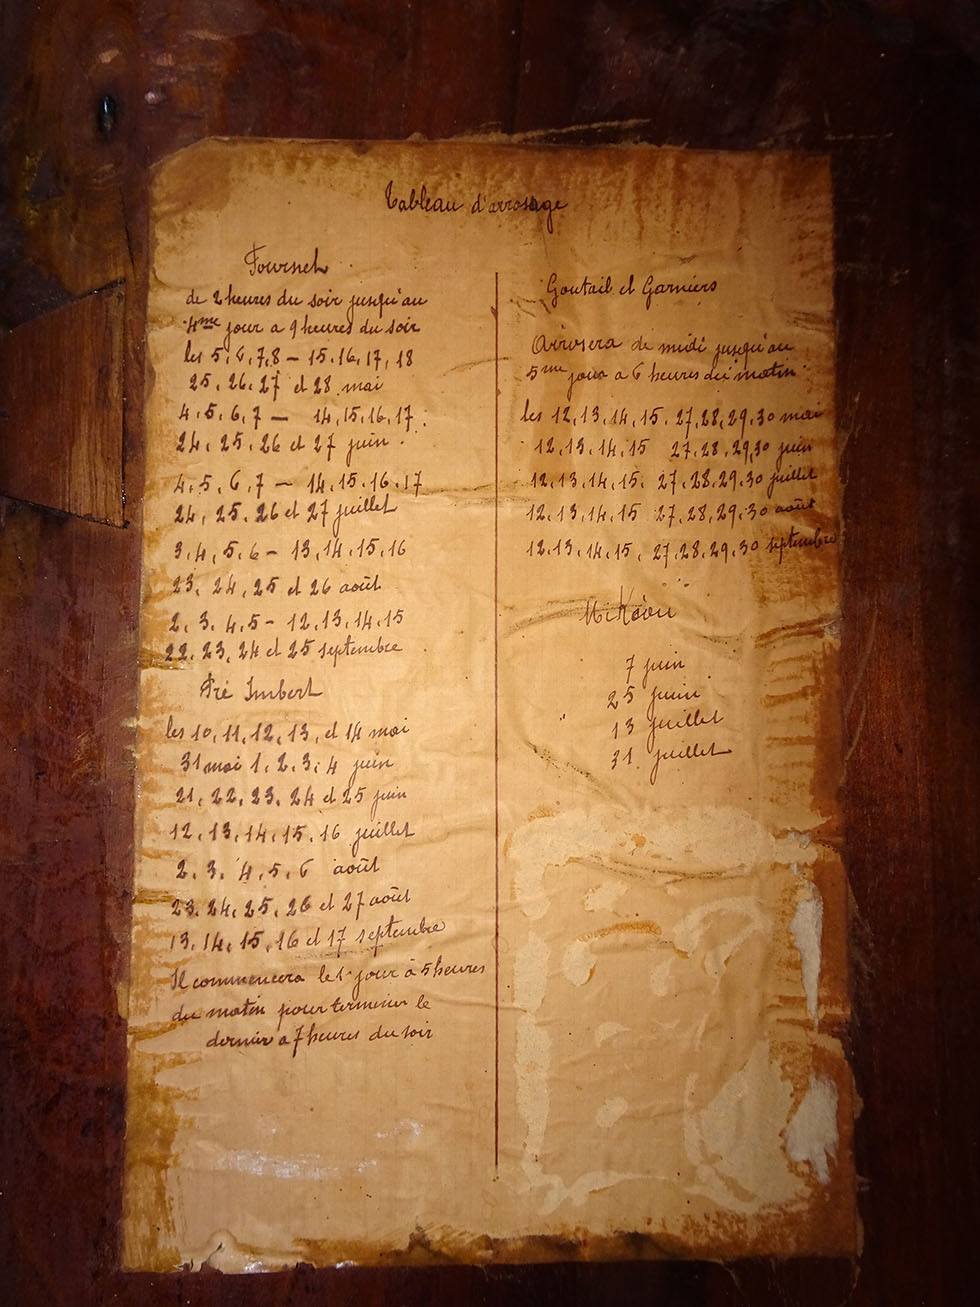 Tableau d'arrosage
Fournel
de 2 heures du soir jusqu'au
4me jour a 9 heures du soir
les 5.6.7.8 – 15.16.17.18
25.26.27 et 28 mai
4.5.6.7 – 14.15.16.17.
24.25.26 et 27 juin.
4.5.6.7 – 14.15.16.17
24.25.26 et 27 juillet
3.4.5.6 – 13.14.15.16
23.24.25 et 26 août
2.3.4.5 – 12.13.14.15
22.23.24 et 25 septembre
Pré Imbert
les 10.11.12.13. et 14 mai
31 mai 1.2.3.4 juin
21.22.23.24 et 25 juin
12.13.14.15.16 juillet
2.3.4.5.6 août
23.24.25.26 et 27 août
13.14.15.16 et 17 septembre
Il commencera le 1 jour à 5 heures
du matin pour terminer le
dernier a 7 heures du soir
Goutail et Garniers
Arrosera de midi jusqu'au
5me jour a 6 heures du matin
les 12.13.14.15. 27.28.29.30 mai
12.13.14.15 27.28.29.30 juin
12.13.14.15. 27.28.29.30 juillet
12.13.14.15 27.28.29.30 août
12.13.14.15. 27.28.29.30 septembre
7 juin
25 juin
13 juillet
31 juillet